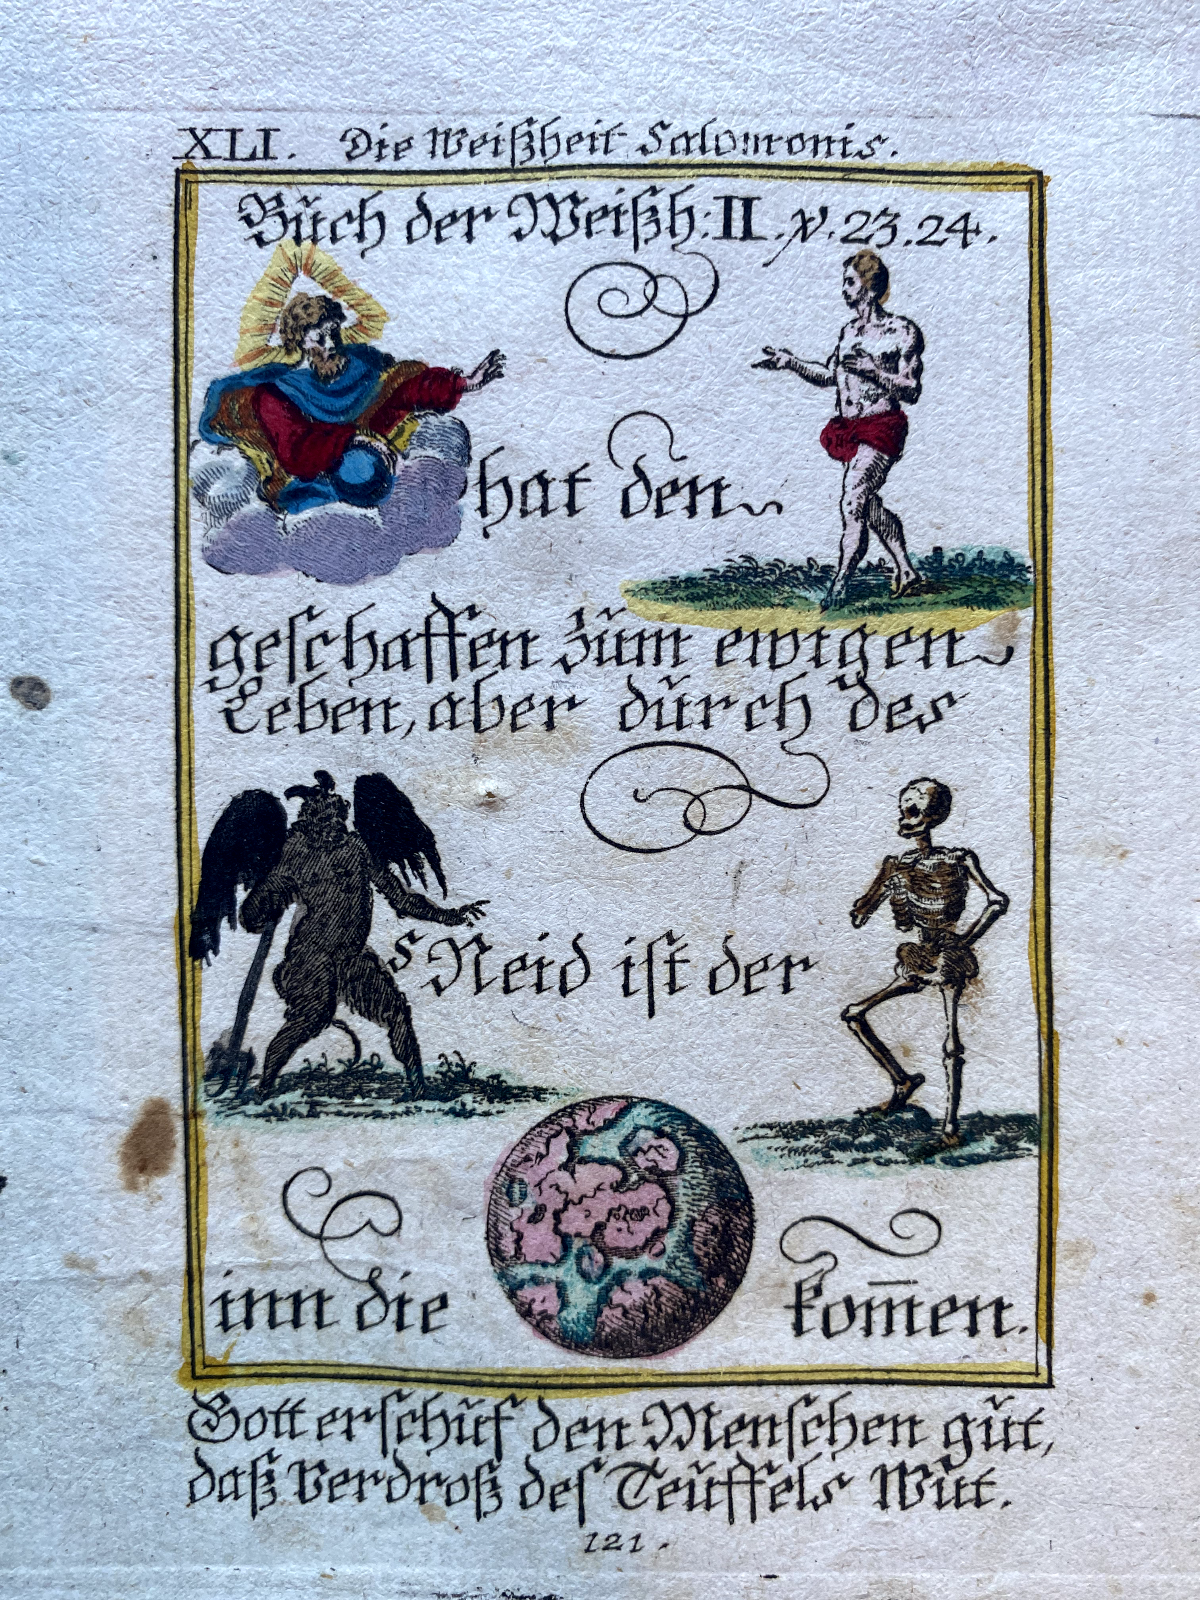 XLI. Die Weißheit Salomonis.
Bŭch der Weißh: II. v. 23. 24.
hat den
geschaffen zŭm ewigen
Leben, aber dŭrch des
s Neid ist der
inn die kom̅en.
Gott erschŭf den Menschen gŭt,
daß verdroß des Teŭffels Wŭt.
121.